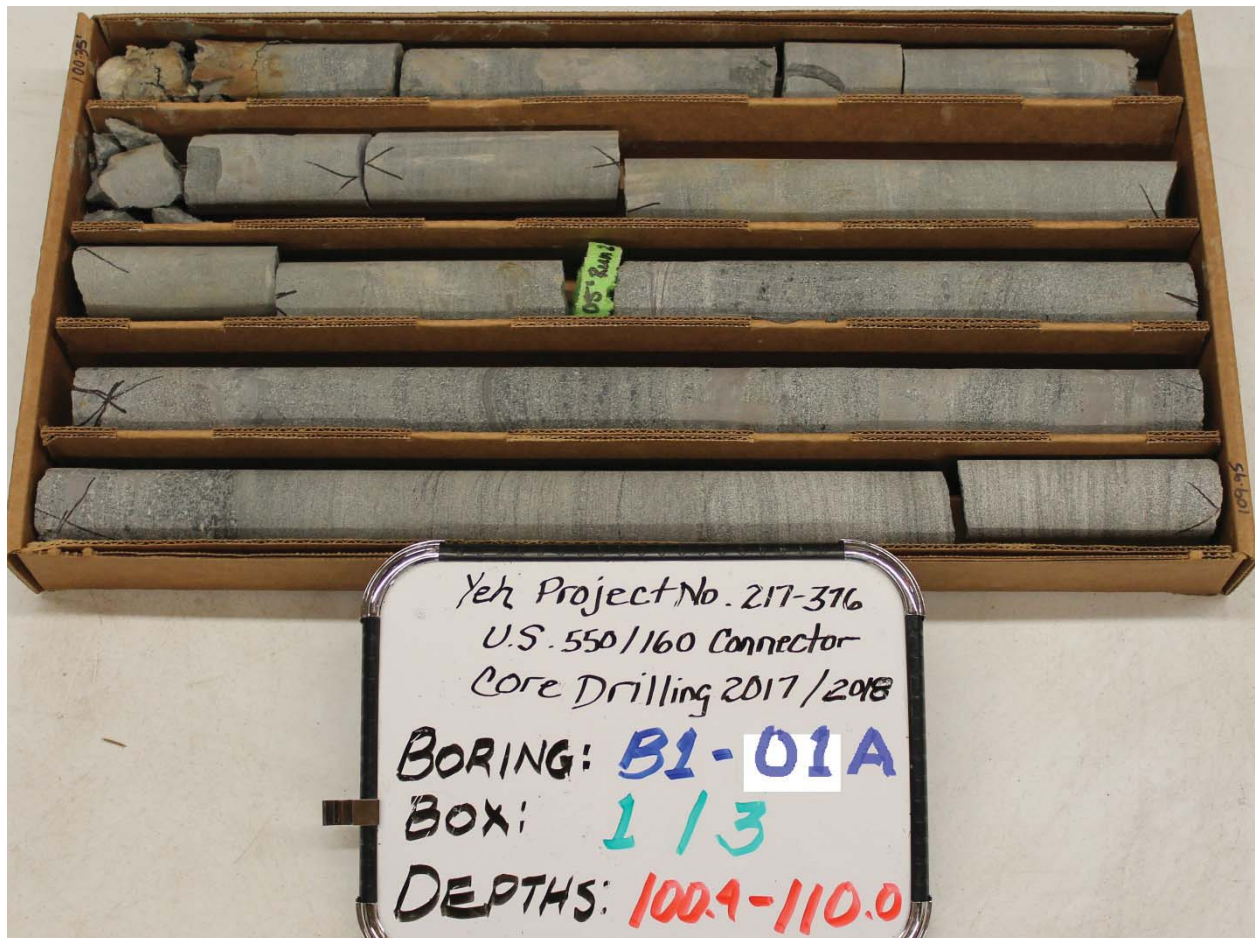 100.35'
05' Run 2
109.95
Yeh Project No. 217-376
U.S. 550/160 Connector
Core Drilling 2017/2018
BORING: B1-01A
BOX: 1/3
DEPTHS: 100.4-110.0